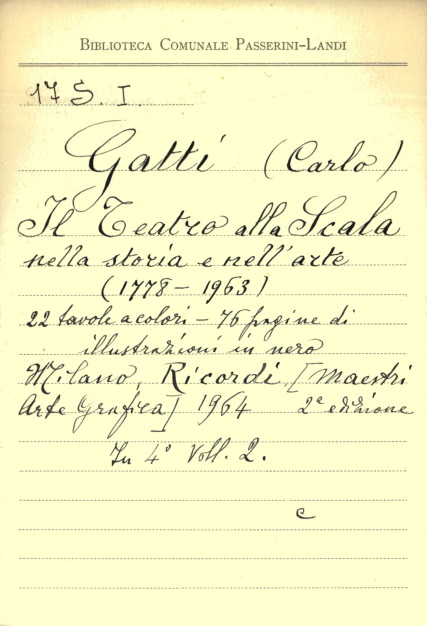 BIBLIOTECA COMUNALE PASSERINI-LANDI
17 S. I.
Gatti (Carlo)
Il Teatro alla Scala
nella storia e nell'arte
(1778 - 1963)
22 tavole a colori - 76 pagine di
illustrazioni in nero
Milano, Ricordi, [Maestri
Arte Grafica] 1964 2ª edizione
In 4° Voll. 2.
c